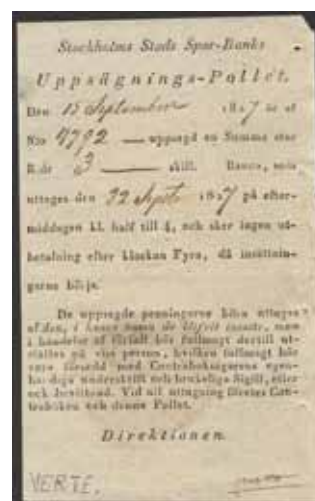 Stockholms Stads Spar-Banks
Uppsägnings-Pollet.
Den 15 September 1827 är af
N:o 4792 — uppsagd en Summa stor
R:dr 3 — skill. Banco, som
uttages den 22 Sept 1827 på efter-
middagen kl. half till 4, och sker ingen ut-
betalning efter klockan Fyra, då insättnin-
garne börja.
De uppsagde penningarne böra uttagas
af den, i hvars namn de blifvit insatte, men
i händelse af förfall bör fullmagt dertill ut-
ställas på viss person, hvilken fullmagt bör
vara försedd med Contraboksegarens egen-
händiga underskrift och brukeliga Sigill, eller
ock bevittnad. Vid all uttagning företes Con-
traboken och denna Pollet.
Direktionen.
VERTE.